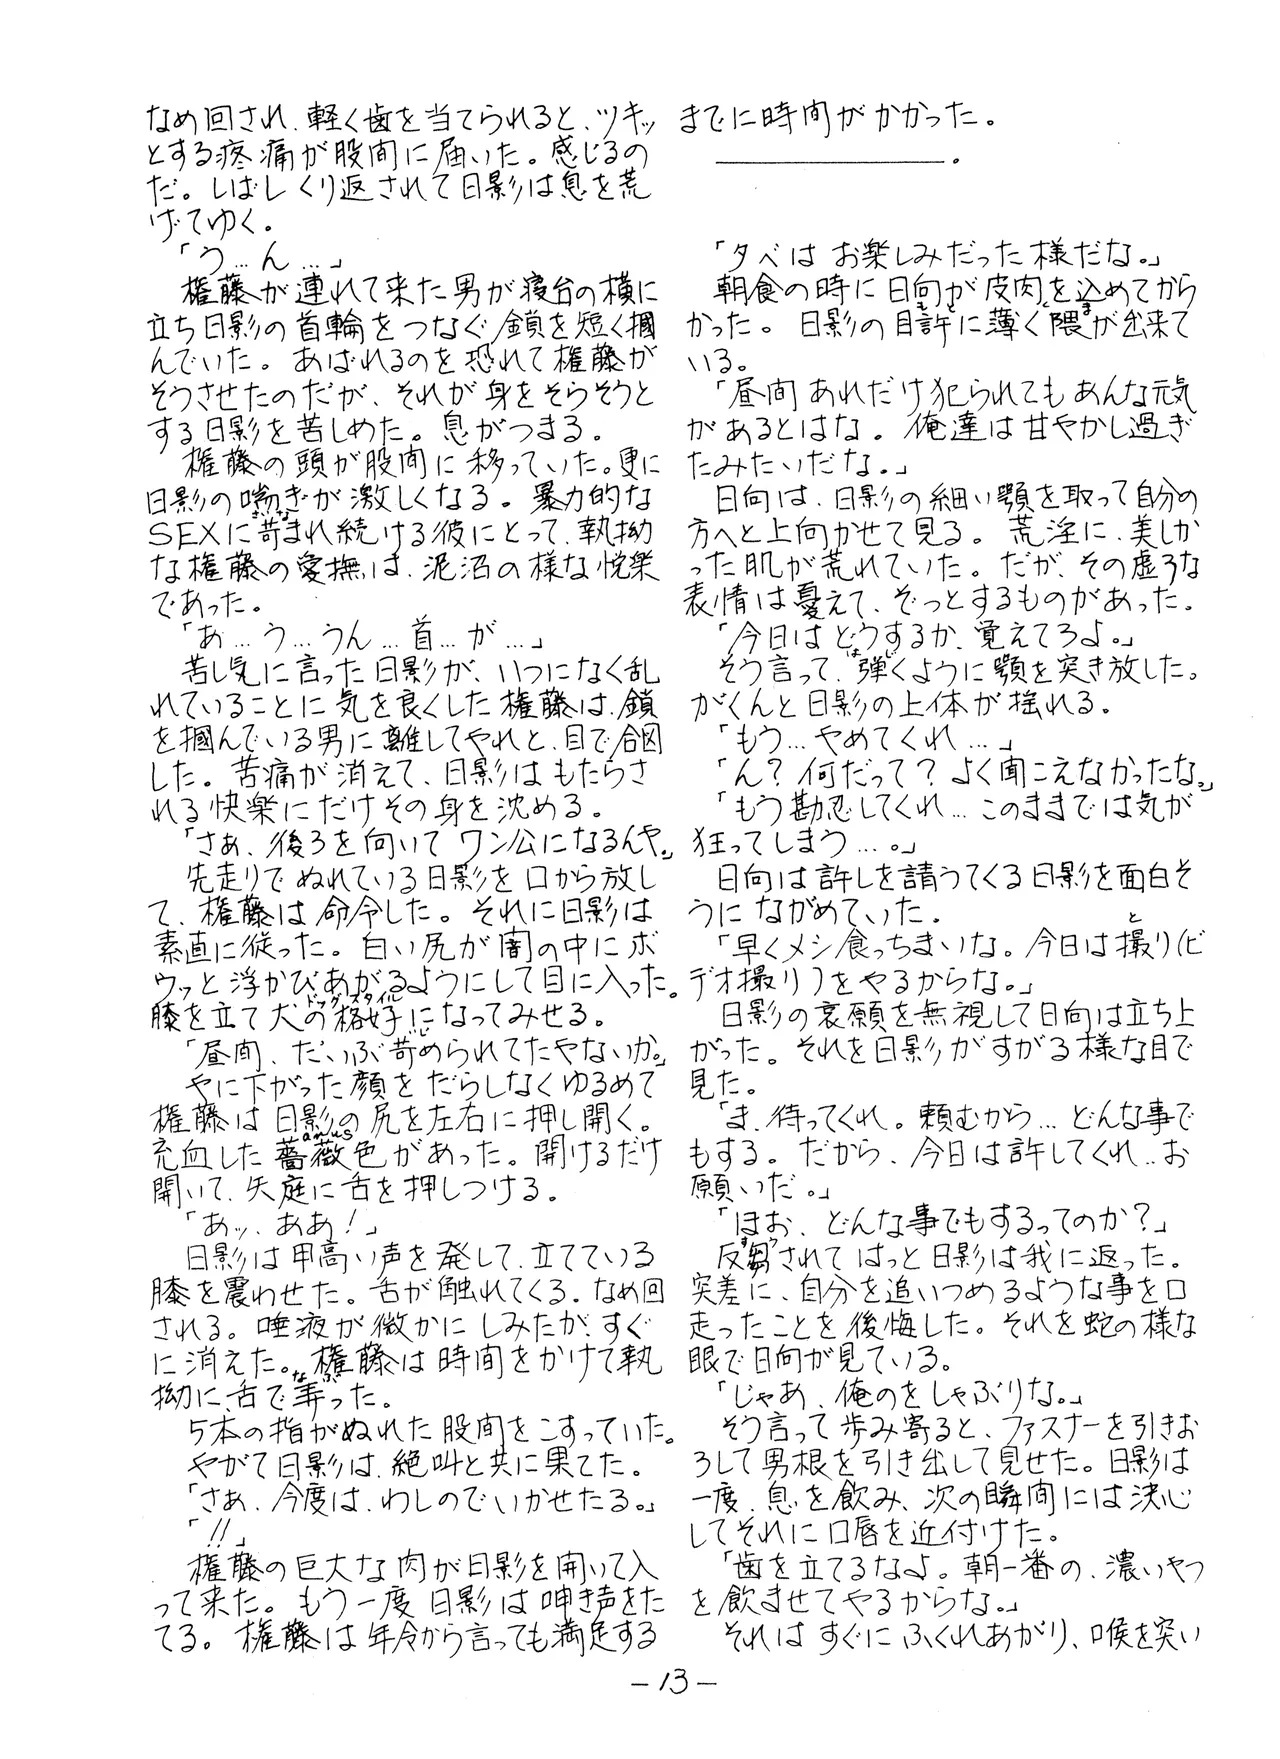 なめ回され、軽く歯を当てられると、ツキッ
とする疼痛が股間に届いた。感じるの
だ。しばしくり返されて日影は息を荒
げてゆく。
「う…ん…」
権藤が連れて来た男が寝台の横に
立ち日影の首輪をつなぐ鎖を短く掴
んでいた。あばれるのを恐れて権藤が
そうさせたのだが、それが身をそらそうと
する日影を苦しめた。息がつまる。
権藤の頭が股間に移っていた。更に
日影の喘ぎが激しくなる。暴力的な
SEXに苛まれ続ける彼にとって、執拗
な権藤の愛撫は、泥沼の様な悦楽
であった。
「あ…う…うん…首…が…」
苦し気に言った日影が、いつになく乱
れていることに気を良くした権藤は、鎖
を掴んでいる男に離してやれと、目で合図
した。苦痛が消えて、日影はもたらさ
れる快楽にだけその身を沈める。
「さぁ、後ろを向いてワン公になるんや。」
先走りでぬれている日影を口から放し
て、権藤は命令した。それに日影は
素直に従った。白い尻が闇の中にボ
ウッと浮かびあがるようにして目に入った。
膝を立て犬の格好(ドッグスタイル)になってみせる。
「昼間、だいぶ苛められてたやないか。」
やに下がった顔をだらしなくゆるめて
権藤は日影の尻を左右に押し開く。
充血した薔薇色(anus)があった。開けるだけ
開いて、矢庭に舌を押しつける。
「あッ、ああ！」
日影は甲高い声を発して、立てている
膝を震わせた。舌が触れてくる。なめ回
される。唾液が微かにしみたが、すぐ
に消えた。権藤は時間をかけて執
拗に、舌で弄(なぶ)った。
5本の指がぬれた股間をこすっていた。
やがて日影は、絶叫と共に果てた。
「さあ、今度は、わしのでいかせたる。」
「!!」
権藤の巨大な肉が日影を開いて入
って来た。もう一度日影は呻き声をた
てる。権藤は年令から言っても満足する
までに時間がかかった。
――――――――――。
「夕べはお楽しみだった様だな。」
朝食の時に日向が皮肉を込めてから
かった。日影の目許(もと)に薄く隈(くま)が出来て
いる。
「昼間あれだけ犯られてもあんな元気
があるとはな。俺達は甘やかし過ぎ
たみたいだな。」
日向は、日影の細い顎を取って自分の
方へと上向かせて見る。荒淫に、美しか
った肌が荒れていた。だが、その虚ろな
表情は憂えて、ぞっとするものがあった。
「今日はどうするか、覚えてろよ。」
そう言って、弾(はじ)くように顎を突き放した。
がくんと日影の上体が揺れる。
「もう…やめてくれ…」
「ん？何だって？よく聞こえなかったな。」
「もう勘忍してくれ…このままでは気が
狂ってしまう…。」
日向は許しを請うてくる日影を面白そ
うにながめていた。
「早くメシ食っちまいな。今日は撮(と)り(ビ
デオ撮り)をやるからな。」
日影の哀願を無視して日向は立ち上
がった。それを日影がすがる様な目で
見た。
「ま、待ってくれ。頼むから…どんな事で
もする。だから、今日は許してくれ‥お
願いだ。」
「ほお、どんな事でもするってのか？」
反芻(すう)されてはっと日影は我に返った。
突差に、自分を追いつめるような事を口
走ったことを後悔した。それを蛇の様な
眼で日向が見ている。
「じゃあ、俺のをしゃぶりな。」
そう言って歩み寄ると、ファスナーを引きお
ろして男根を引き出して見せた。日影は
一度、息を飲み、次の瞬間には決心
してそれに口唇を近付けた。
「歯を立てるなよ。朝一番の、濃いやつ
を飲ませてやるからな。」
それはすぐにふくれあがり、喉を突い
－13－